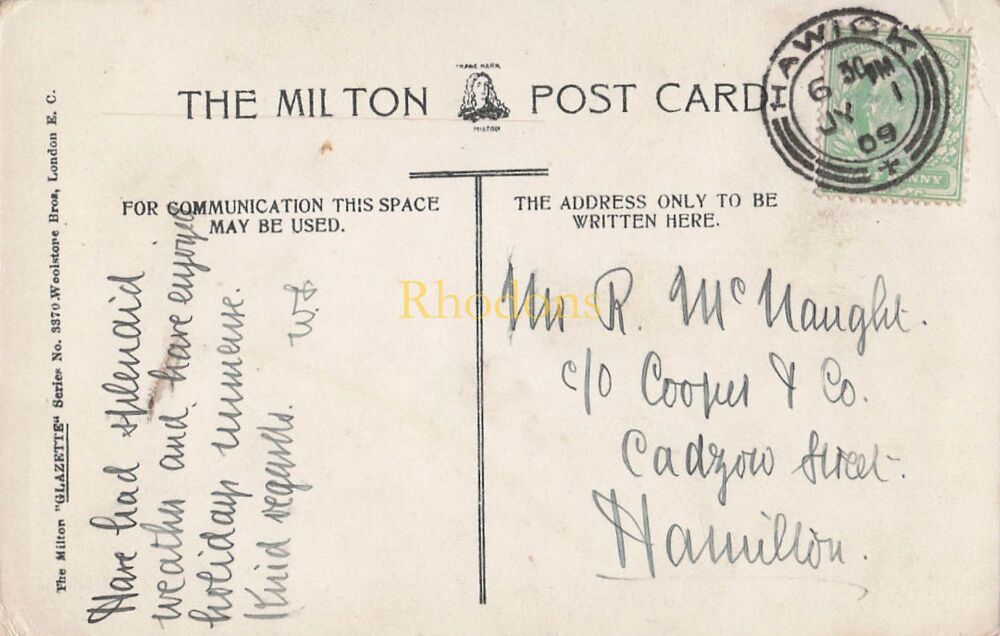 THE MILTON POST CARD
TRADE MARK
MILTON
HAWICK
30 PM
JY 1
09
FOR COMMUNICATION THIS SPACE
MAY BE USED.
THE ADDRESS ONLY TO BE
WRITTEN HERE.
The Milton "GLAZETTE" Series No. 3370. Woolstone Bros, London E. C.
Have had splendid
weather and have enjoyed
holidays immense.
Kind regards. W.S
Rhodons
Mr R. McNaught.
c/o Cooper & Co.
Cadzow Street.
Hamilton.